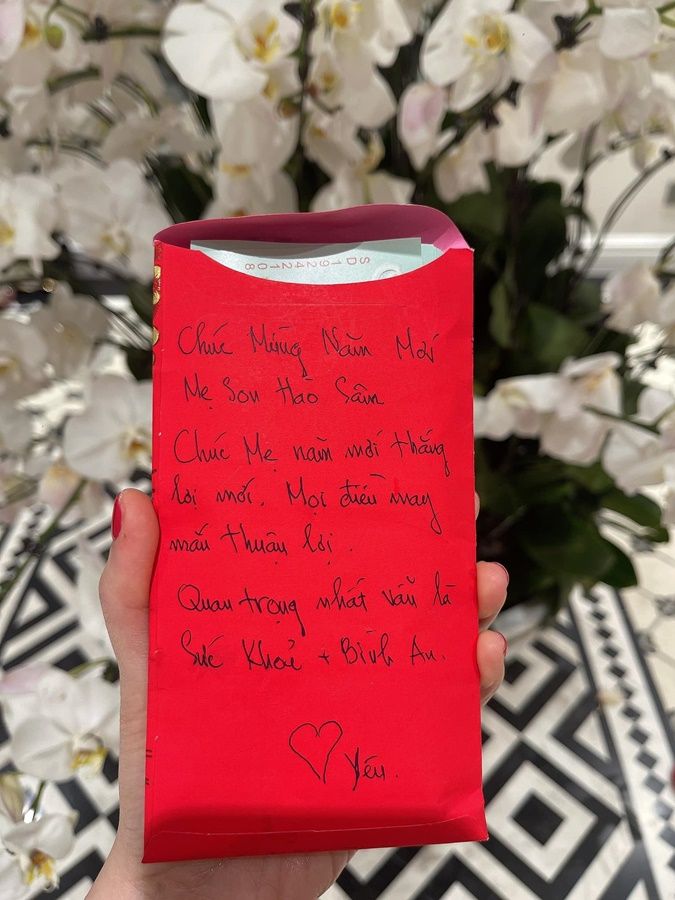 SD19242108
Chúc Mừng Năm Mới
Mẹ Son Hào Sâm
Chúc Mẹ năm mới thắng
lợi mới. Mọi điều may
mắn thuận lợi.
Quan trọng nhất vẫn là
Sức Khoẻ + Bình An.
♡ Yến.